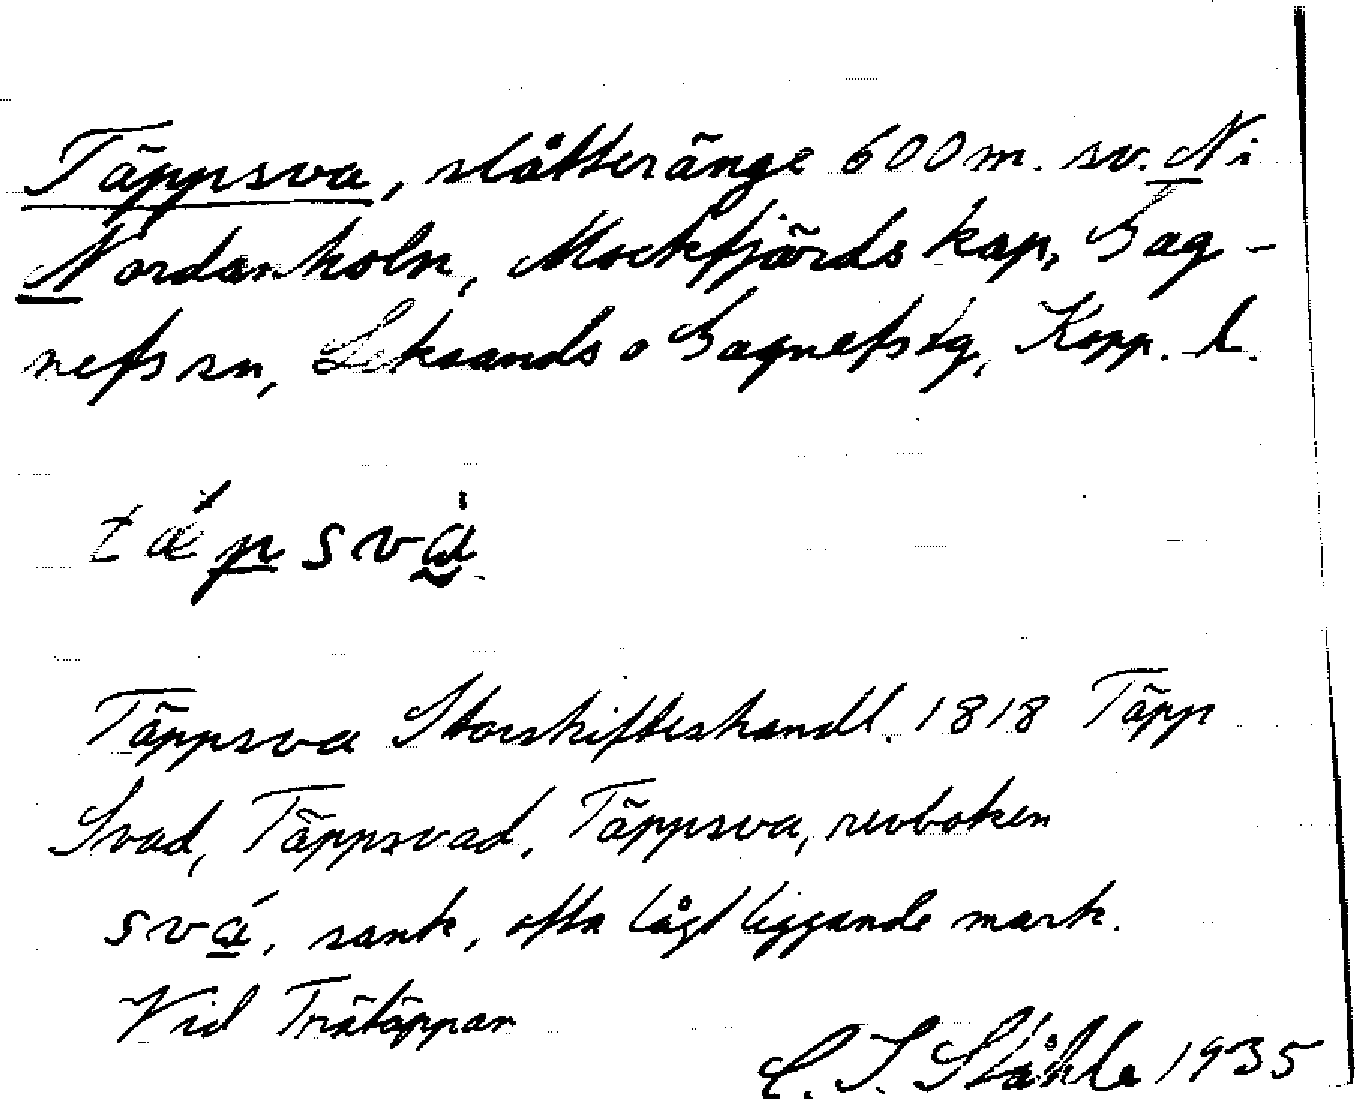 Täppsva, slåtteränge 600 m. sv. N i
Nordanholn, Mockfjärds kap, Gag-
nefs sn, Leksands o Gagnefs tg, Kopp. l.
tä́psvà
Täppsva Storskifteshandl. 1818 Täpp
Svad, Täppsvad, Täppsva, revboken
svá, sank, ofta lågt liggande mark.
Vid Trätäppan
C. I. Ståhle 1935